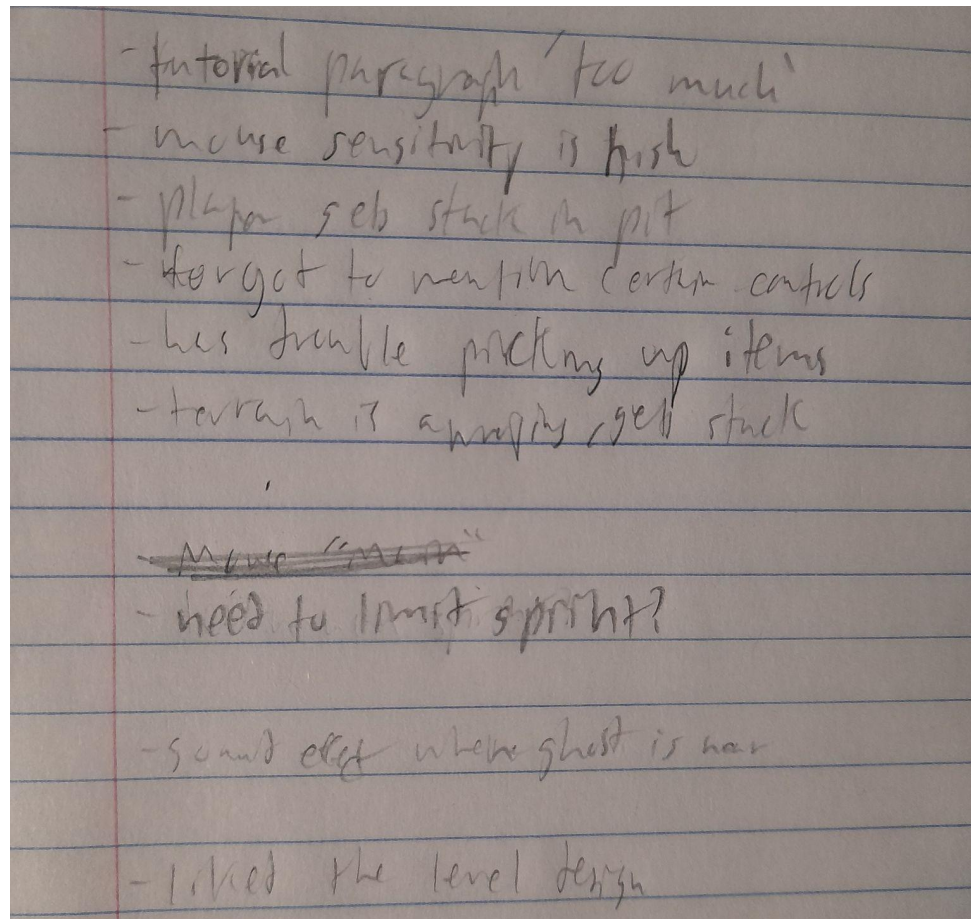 - tutorial paragraph 'too much'
- mouse sensitivity is high
- player gets stuck in pit
- forgot to mention certain controls
- has trouble picking up items
- terrain is annoying, gets stuck
- need to limit sprint?
- sound effect where ghost is near
- liked the level design